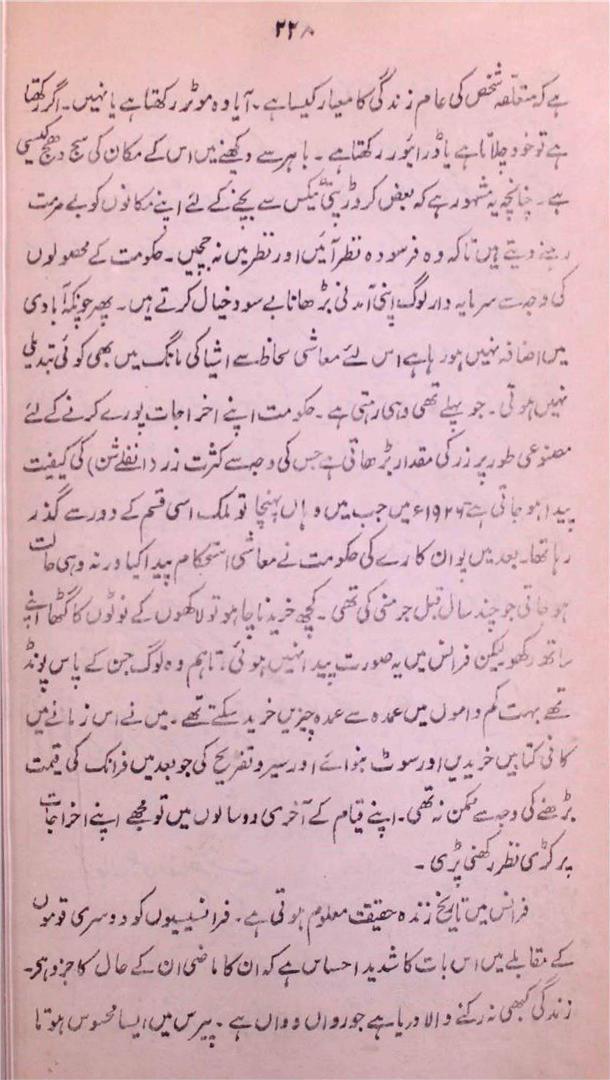 ۲۲۸
ہے کہ متعلقہ شخص کی عام زندگی کا معیار کیسا ہے۔ آیا وہ موٹر رکھتا ہے یا نہیں۔ اگر رکھتا
ہے تو خود چلاتا ہے یا ڈرائیور رکھتا ہے۔ باہر سے دیکھنے میں اس کے مکان کی سج دھج کیسی
ہے۔ چنانچہ یہ مشہور ہے کہ بعض کروڑ پتی ٹیکس سے بچنے کے لئے اپنے مکانوں کو بے مرمت
رہنے دیتے ہیں تاکہ وہ فرسودہ نظر آئیں اور نظر میں نہ جچیں۔ حکومت کے محصولوں
کی وجہ سے سرمایہ دار لوگ اپنی آمدنی بڑھانا بے سود خیال کرتے ہیں۔ پھر چونکہ آبادی
میں اضافہ نہیں ہو رہا ہے اس لئے معاشی لحاظ سے اشیا کی مانگ میں بھی کوئی تبدیلی
نہیں ہوتی۔ جو پہلے تھی وہی رہتی ہے۔ حکومت اپنے اخراجات پورے کرنے کے لئے
مصنوعی طور پر زر کی مقدار بڑھاتی ہے جس کی وجہ سے کثرت زر (انفلےشن) کی کیفیت
پیدا ہو جاتی ہے ۱۹۲۶ء میں جب میں وہاں پہنچا تو ملک اسی قسم کے دور سے گذر
رہا تھا۔ بعد میں پوان کارے کی حکومت نے معاشی استحکام پیدا کیا ورنہ وہی حالت
ہو جاتی جو چند سال قبل جرمنی کی تھی۔ کچھ خریدنا چاہو تو لاکھوں کے نوٹوں کا گٹھا اپنے
ساتھ رکھو لیکن فرانس میں یہ صورت پیدا نہیں ہوئی۔ تاہم وہ لوگ جن کے پاس پونڈ
تھے بہت کم داموں میں عمدہ سے عمدہ چیزیں خرید سکتے تھے۔ میں نے اس زمانے میں
کافی کتابیں خریدیں اور سوٹ بنوائے اور سیر و تفریح کی جو بعد میں فرانک کی قیمت
بڑھنے کی وجہ سے ممکن نہ تھی۔ اپنے قیام کے آخری دو سالوں میں تو مجھے اپنے اخراجات
پر کڑی نظر رکھنی پڑی۔
فرانس میں تاریخ زندہ حقیقت معلوم ہوتی ہے۔ فرانسیسیوں کو دوسری قوموں
کے مقابلے میں اس بات کا شدید احساس ہے کہ ان کا ماضی ان کے حال کا جزو ہے۔
زندگی کبھی نہ رکنے والا دریا ہے جو رواں دواں ہے۔ پیرس میں ایسا محسوس ہوتا